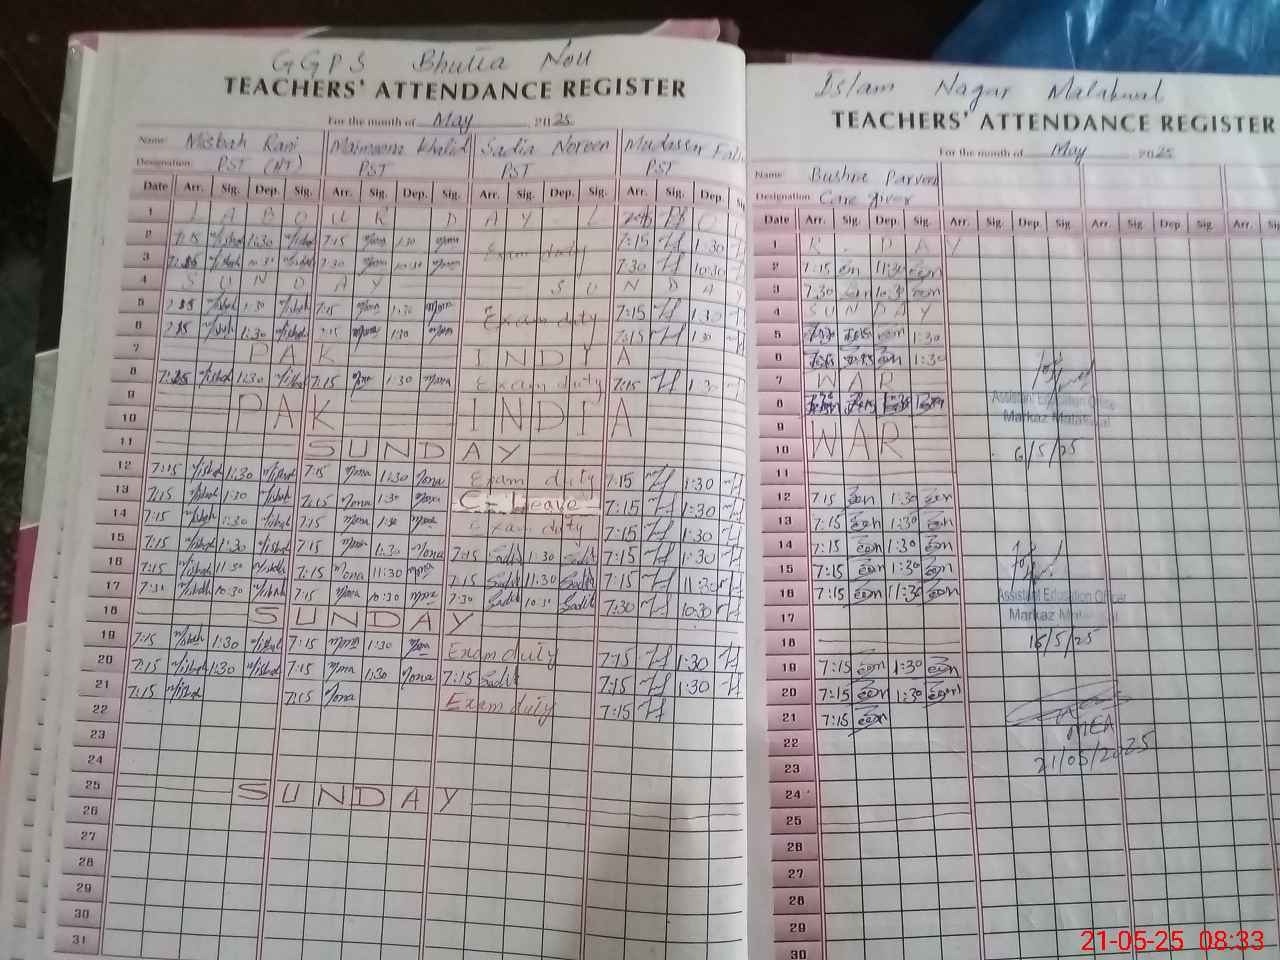 GGPS Bhutta Nou
TEACHERS' ATTENDANCE REGISTER
For the month of May 2025
Name: Misbah Rani Maimoona Khalid Sadia Noreen Mudassir
Designation PST (HT) PST PST PST
Date Arr. Sig. Dep. Sig. Arr. Sig. Dep. Sig. Arr. Sig. Dep. Sig. Arr. Sig. Dep.
1 LABOUR DAY
2 7:15 1:30 7:15 1:30 Exam duty 7:15 1:30
3 10:30 7:30 10:30 7:30 10:30
4 SUNDAY SUNDAY
5 1:30 7:15 1:30 Exam duty 7:15 1:30
6 1:30 7:15 1:30 7:15 1:30
7 PAK INDIA
8 1:30 7:15 1:30 Exam duty 7:15 1:30
9
10 PAK INDIA
11 SUNDAY
12 7:15 1:30 7:15 1:30 Exam duty 7:15 1:30
13 7:15 1:30 7:15 Mona 1:30 C-Leave 7:15 1:30
14 7:15 1:30 7:15 Mona 1:30 Exam duty 7:15 1:30
15 7:15 1:30 7:15 1:30 Mona 7:15 Sadia 1:30 Sadia 7:15 1:30
16 7:15 11:30 7:15 Mona 11:30 Mona 7:15 Sadia 11:30 Sadia 7:15 11:30
17 7:30 10:30 7:15 Mona 10:30 Mona 7:30 Sadia 10:30 Sadia 7:30 10:30
18 SUNDAY
19 7:15 1:30 7:15 Mona 1:30 Mona Exam duty 7:15 1:30
20 7:15 1:30 7:15 Mona 1:30 Mona 7:15 Sadia 7:15 1:30
21 7:15 7:15 Mona Exam duty 7:15
22
23
24
25 SUNDAY
26
27
28
29
30
31
Islam Nagar Malakwal
TEACHERS' ATTENDANCE REGISTER
For the month of May 2025
Name: Bushra Parveen
Designation Care giver
Date Arr. Sig. Dep. Sig. Arr. Sig. Dep. Sig. Arr. Sig. Dep. Sig. Arr. Sig.
1 R DAY
2 7:15 11:30
3 7:30 10:30
4 SUNDAY
5 1:30
6 1:30
7 WAR
8
9
10 WAR
11
12 7:15 1:30
13 7:15 1:30
14 7:15 1:30
15 7:15 1:30
16 7:15 11:30
17
18
19 7:15 1:30
20 7:15 1:30
21 7:15
22
23
24
25
26
27
28
29
30
Assistant Education Officer
Markaz Malakwal
6/5/25
Assistant Education Officer
Markaz Malakwal
16/5/25
MEA
21/05/2025
21-05-25 08:33